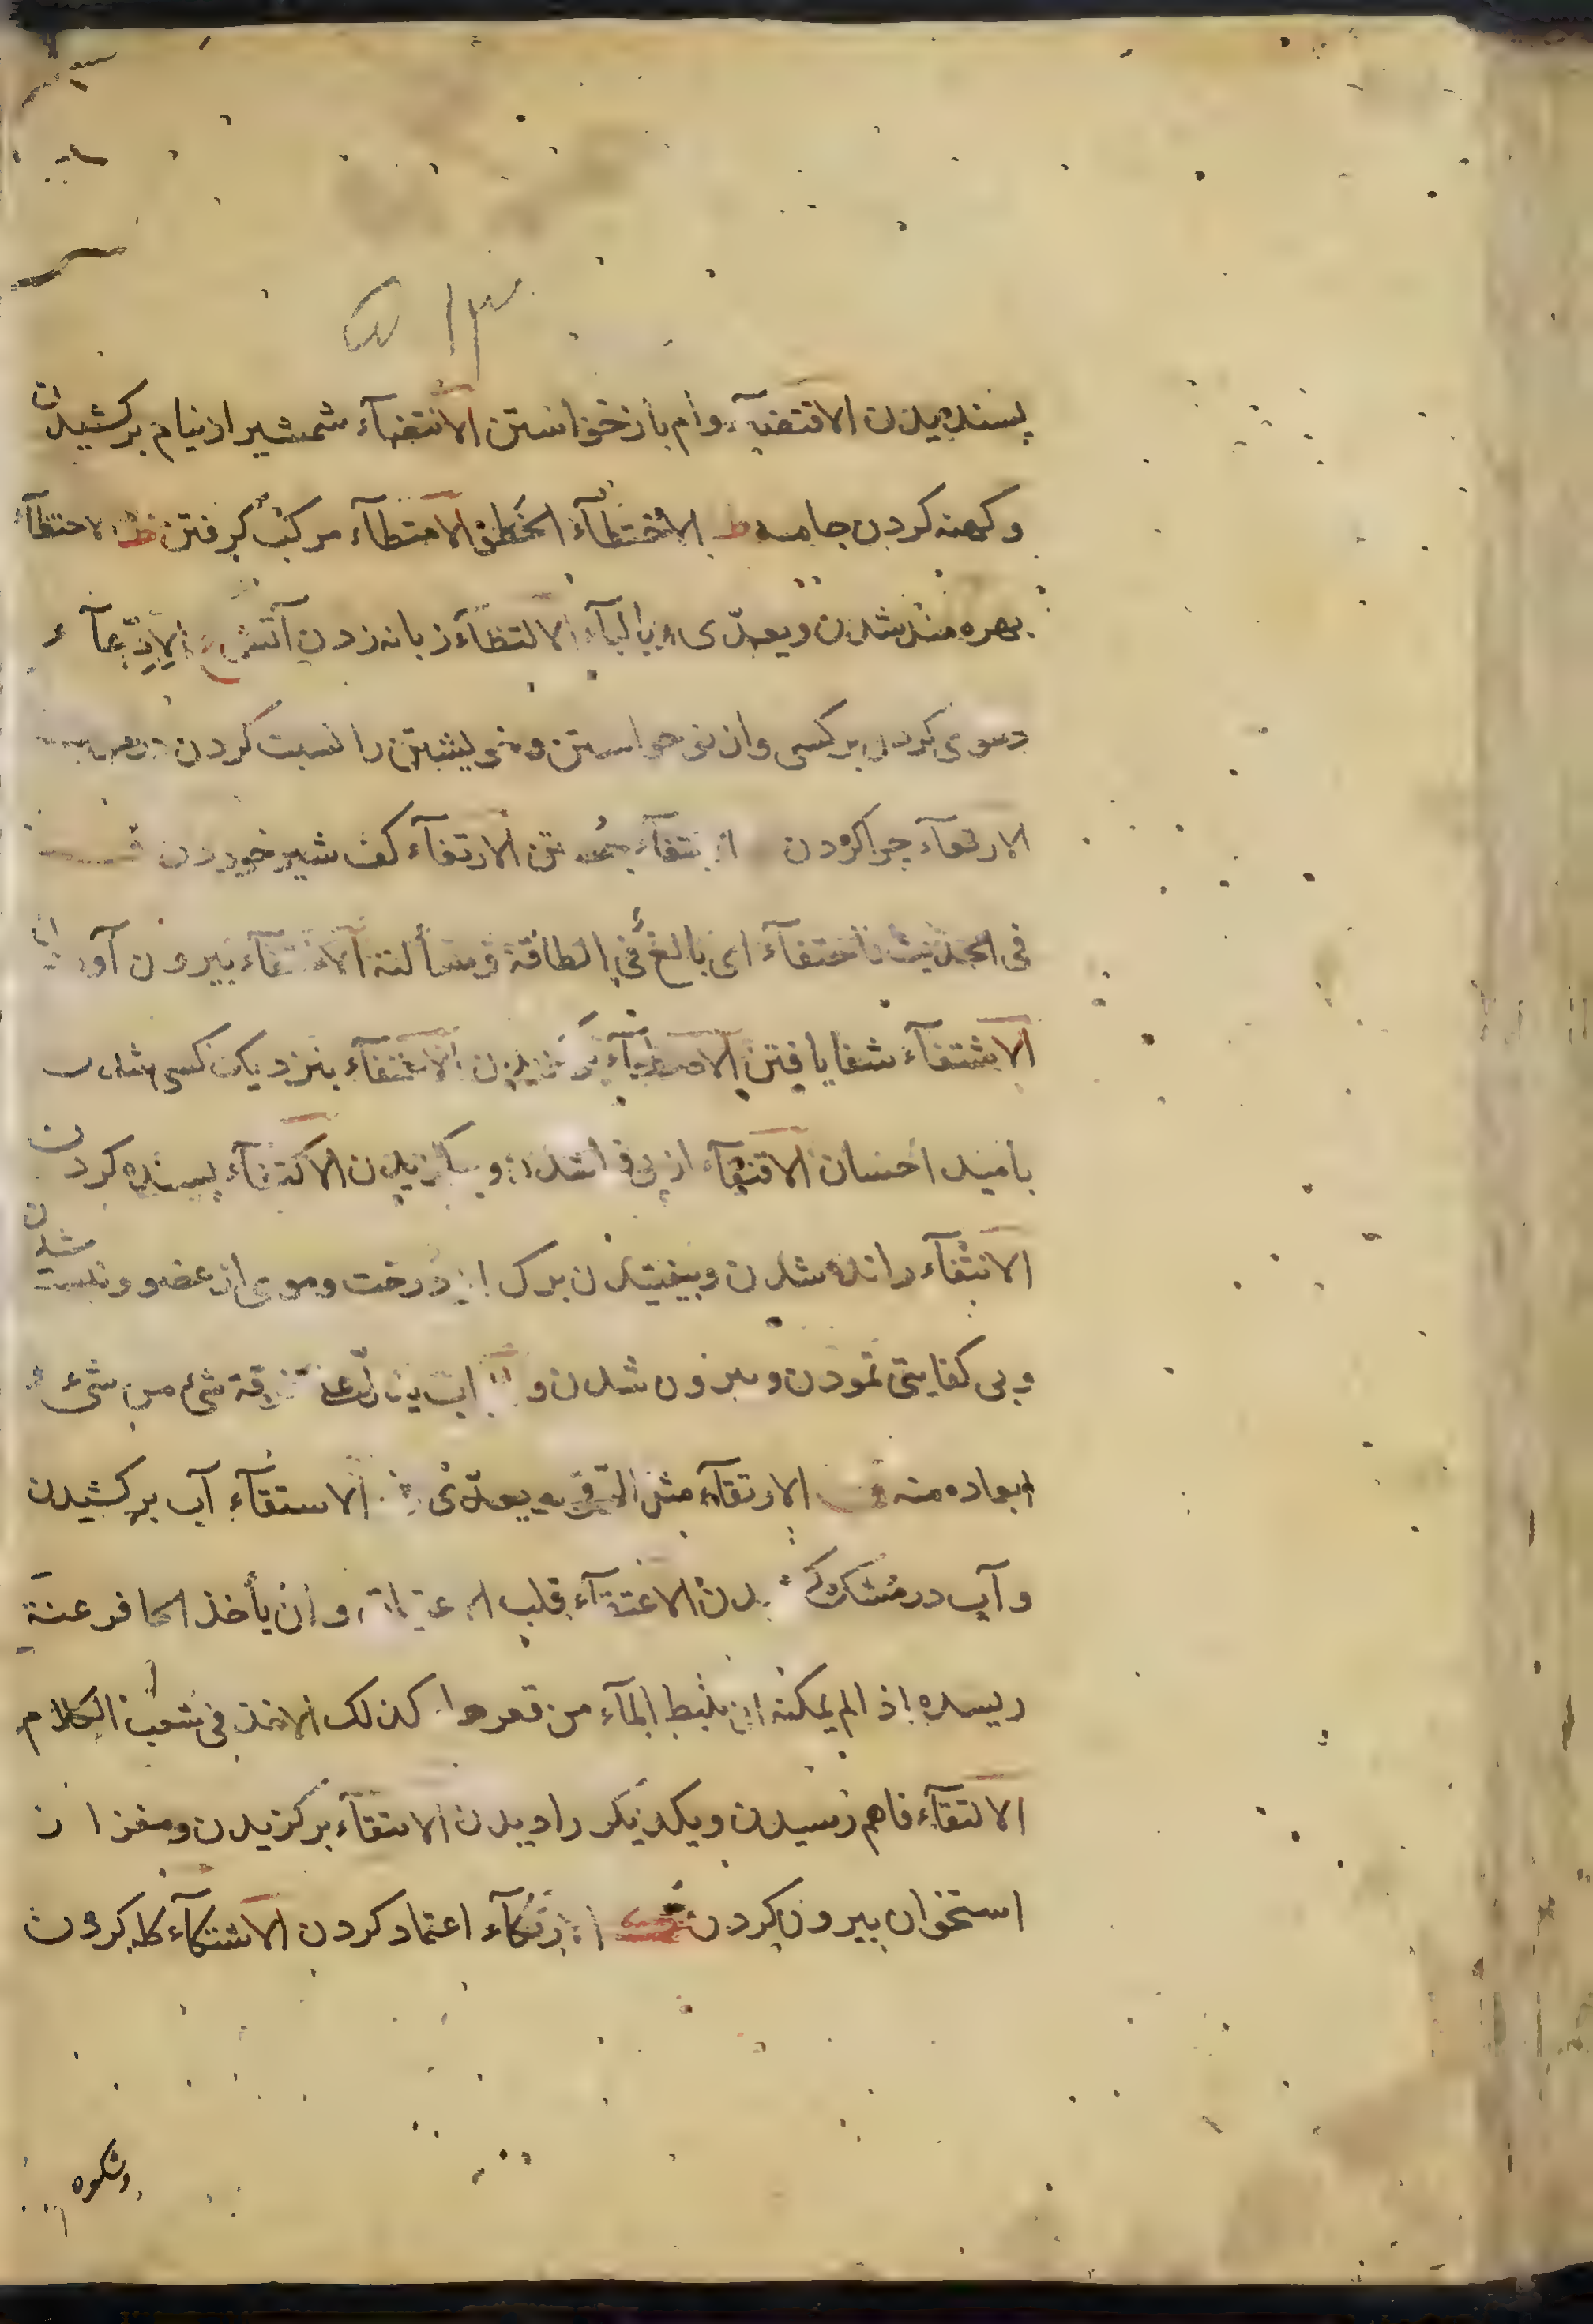 ۵۱۳
پسندیدن الاقتضآء وام بازخواستن الانتضآء شمشیر از نیام برکشیدن
وکهنه کردن جامه ط الاختطآء الخطو الامتطآء مرکب گرفتن ظ الاحتظآء
بهره مند شدن ویعدّی بالبآء الالتظآء زبانه زدن آتش ع الادّعآء
دعوی کردن بر کسی و از خواستن وخویشتن را نسبت کردن
الارتعآء چرا کردن الارتغآء کف شیر خوردن ف
فی الحدیث ای بالغ فی الطافه ومسألته الاختفآء بیرون آوردن
الاشتفآء شفا یافتن الاصطفآء برگزیدن الاعتفآء بنزدیک کسی شدن
بامید احسان الاقتفآء از پی فرا شدن و برگزیدن الاکتفآء بسنده کردن
الانتفآء رانده شدن وبیفتیدن برگ از درخت وموی از عضو ونیست شدن
وبی کفایتی نمودن وبیرون شدن و الباب یدل علی تعریة شیء من شیء و
ابعاده منه ق الارتقآء مثل الرقی ویعدّی الاستقآء آب برکشیدن
وآب در مشک کشیدن الاعتقآء قلب الاعتیاق وان یأخذ الحافر یمنة
ویسره اذا لم یمکنه ان ینبط المآء من قعرها وکذلک الاخذ فی شعب الکلام
الالتقآء فاهم رسیدن ویکدیگر را دیدن الانتقآء برگزیدن ومغز از
استخوان بیرون کردن ک الارتکآء اعتماد کردن الاشتکآء گله کردن
وشکوه